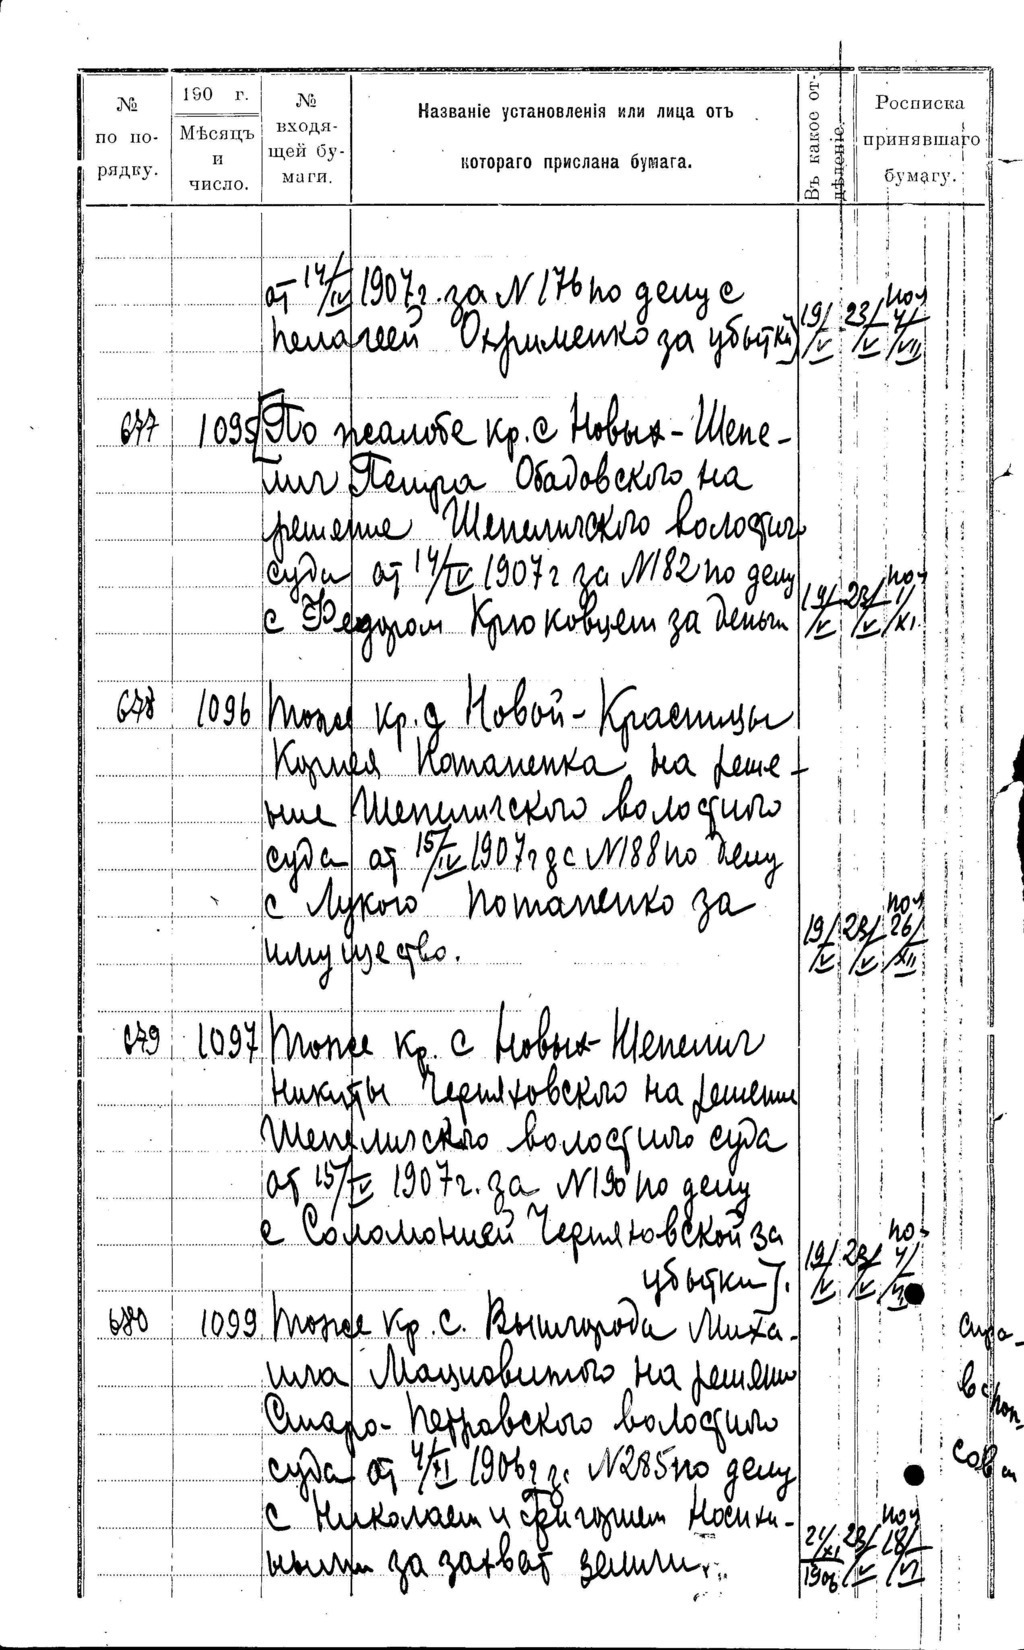 № по порядку.
190 г.
Мѣсяцъ и число.
№ входящей бумаги.
Названіе установленія или лица отъ
котораго прислана бумага.
Въ какое отдѣленіе.
Росписка принявшаго бумагу.
от 14/IV 1907 г. за N 176 по делу с
Пелагеей Охрименко за убытки] 19/V 23/V пол 4/VII
677 1095 [По жалобе кр. с Новых-Шепе-
лич Петра Обадовского на
решение Шепеличского волостного
суда от 14/IV 1907 г за N182 по делу
с Федором Крюковцем за деньги 19/V 23/V пол 1/XI
678 1096 Тоже кр. д Новой-Красницы
Корнея Потапенка на реше-
ние Шепеличского волостного
суда от 15/IV 1907 г за N188 по делу
с Лукою Потапенко за
имущество. 19/V 23/V пол 26/XII
679 1097 Тоже кр. с Новых-Шепелич
Никиты Черняховского на решение
Шепеличского волостного суда
от 15/IV 1907 г. за N190 по делу
с Соломонией Черняховской за
убытки]. 19/V 23/V пол 4/
680 1099 Тоже кр. с. Вышгорода Миха-
ила на решение
Старо-Петровского волостного
суда от 4/XI 1906 г за N285 по делу
с Николаем и Григорием Носихи-
ными за захват земли. 21/XI 1906 23/V пол 18/VI